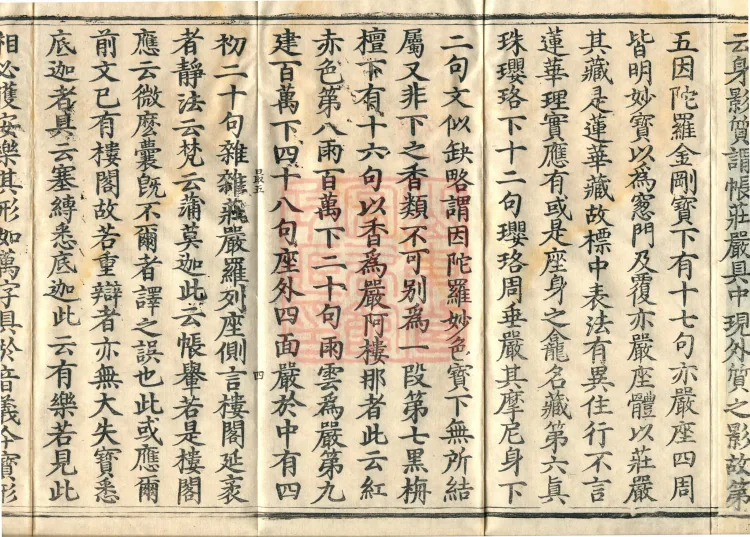 云身影質謂帳莊嚴具中現外質之影故第
五因陀羅金剛寶下有十七句亦嚴座四周
皆明妙寶以為窓門及覆亦嚴座體以莊嚴
其藏是蓮華藏故標中表法有異住行不言
蓮華理實應有或是座身之龕名藏第六真
珠瓔珞下十二句瓔珞周垂嚴其摩尼身下
二句文似缺略謂因陀羅妙色寶下無所結
屬又非下之香類不可別為一段第七黑栴
檀下有十六句以香為嚴阿樓那者此云紅
赤色第八雨百萬下二十句雨雲為嚴第九
建百萬下四十八句座外四面嚴於中有四
㝡五
四
初二十句雜雜莊嚴羅列座側言樓閣延袤
者靜法云梵云蒲莫迦此云帳轝若是樓閣
應云微麼囊旣不爾者譯之誤也此或應爾
前文已有樓閣故若重辯者亦無大失寶悉
底迦者具云塞縛悉底迦此云有樂若見此
相必獲安樂其形如萬字具於音義今寶形